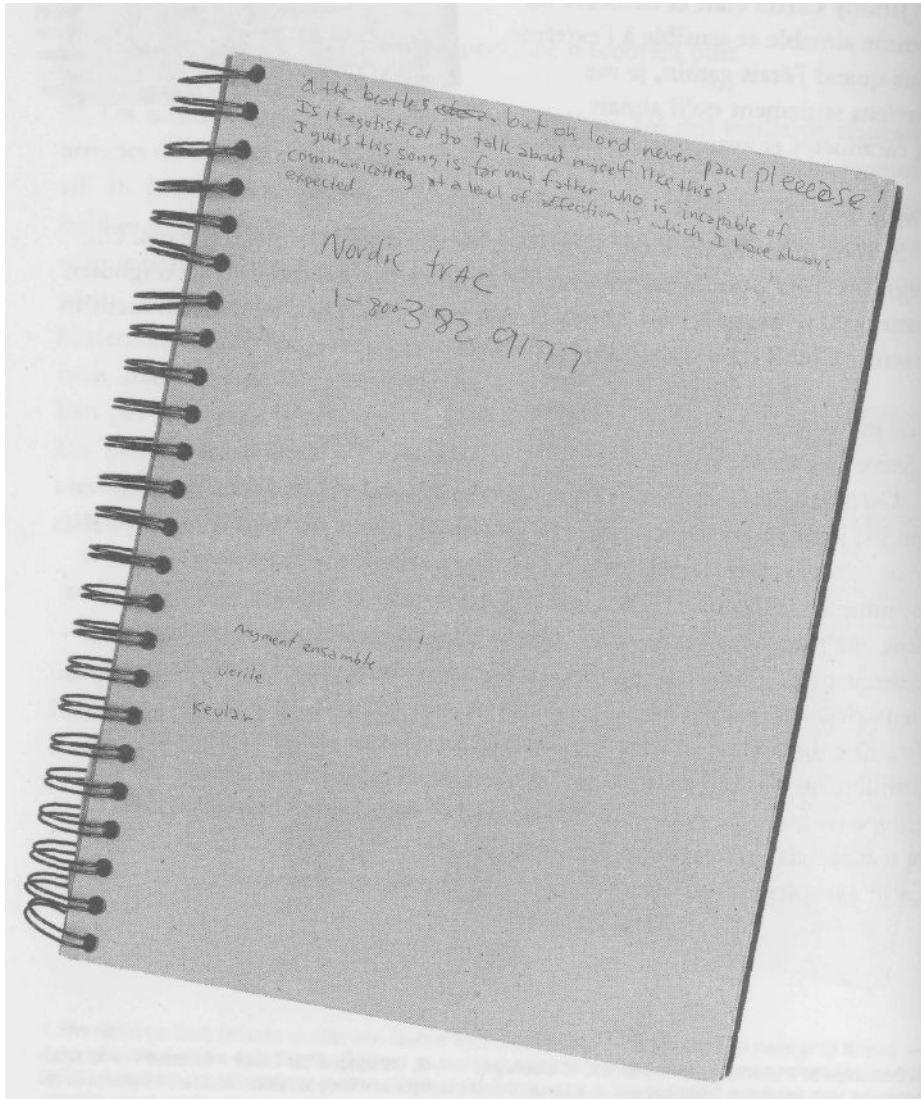 & the beatles but oh lord never paul pleeease!
Is it egotistical to talk about myself like this?
I guess this song is for my father who is incapable of
communicating at a level of affection in which I have always
expected
Nordic trAC
1-800 382 9177
Augment ensamble
verile
Kevlar
mme aimable et sensible à l'extrême
quand j'étais gamin, je me